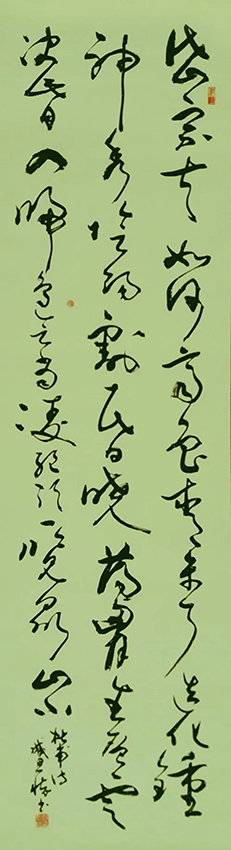 岱宗夫如何齊魯青未了造化鍾
神秀陰陽割昏曉蕩胸生層雲
決眥入歸鳥會當凌絕頂一覽眾山小
杜甫诗
书